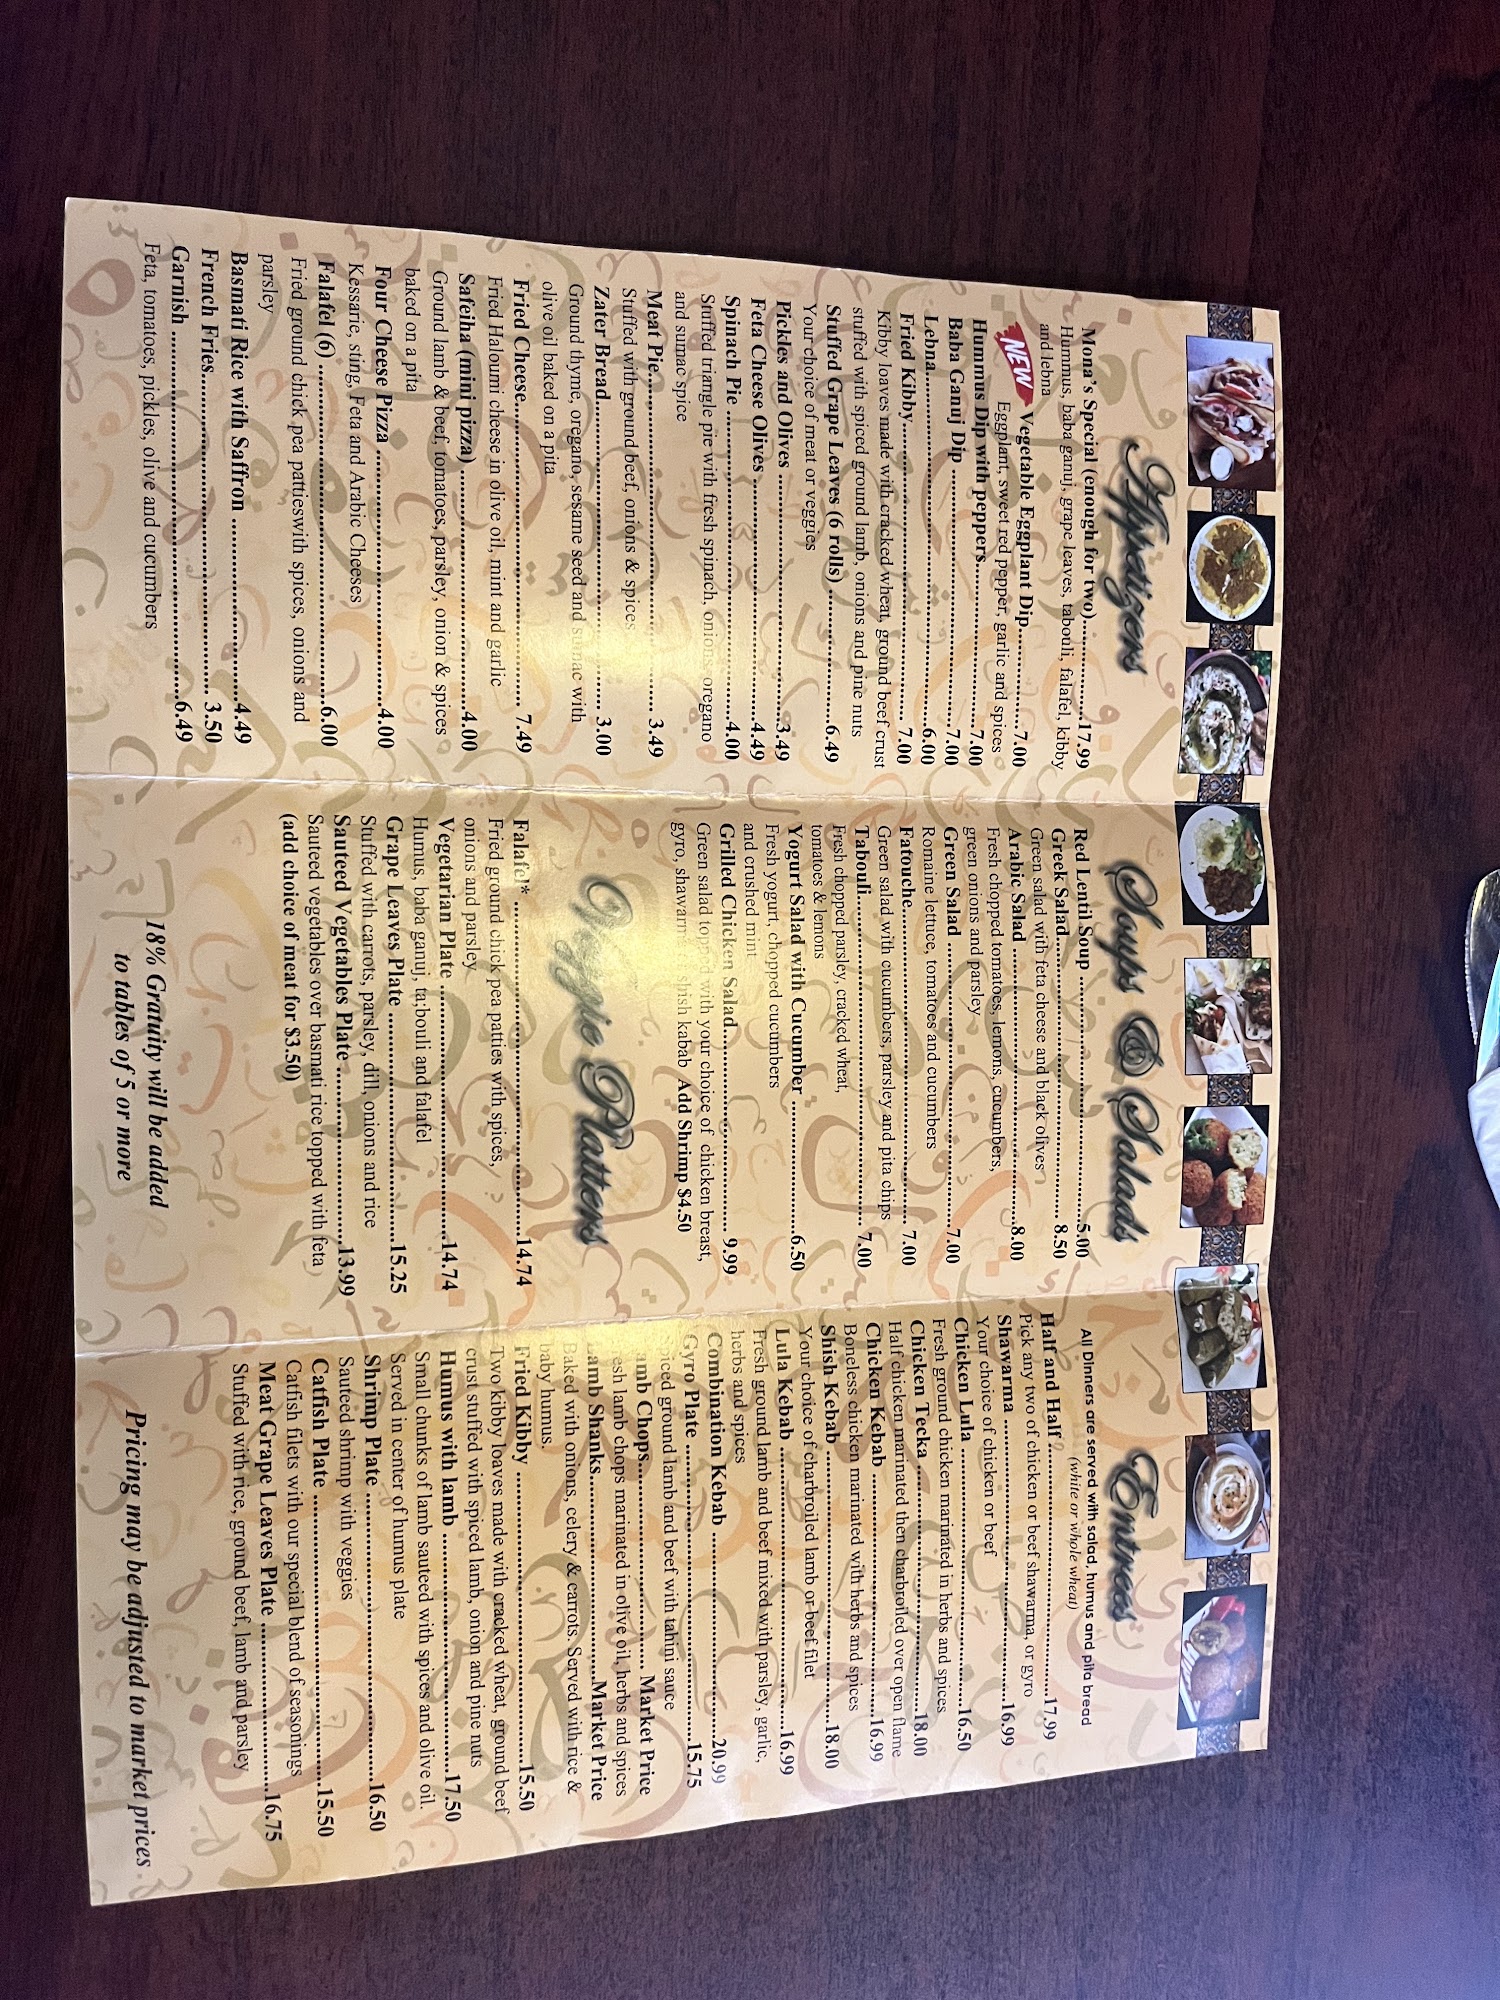 Appetizers
Mona's Special (enough for two)..............17.99
Hummus, baba ganuj, grape leaves, tabouli, falafel, kibby
and lebna
NEW Vegetable Eggplant Dip..........7.00
Eggplant, sweet red pepper, garlic and spices
Hummus Dip with peppers..................7.00
Baba Ganuj Dip ..................7.00
Lebna..................6.00
Fried Kibby.................. 7.00
Kibby loaves made with cracked wheat, ground beef crust
stuffed with spiced ground lamb, onions and pine nuts
Stuffed Grape Leaves (6 rolls) ..................6.49
Your choice of meat or veggies
Pickles and Olives ..................3.49
Feta Cheese Olives ..................4.49
Spinach Pie ..................4.00
Stuffed triangle pie with fresh spinach, onions, oregano
and sumac spice
Meat Pie.................. 3.49
Stuffed with ground beef, onions & spices
Zater Bread.................. 3.00
Ground thyme, oregano, sesame seed and sumac with
olive oil baked on a pita
Fried Cheese.................. 7.49
Fried Haloumi cheese in olive oil, mint and garlic
Safeiha (mini pizza)..................4.00
Ground lamb & beef, tomatoes, parsley, onion & spices
baked on a pita
Four Cheese Pizza ..................4.00
Kessarie, sting, Feta and Arabic Cheeses
Falafel (6) ..................6.00
Fried ground chick pea pattieswith spices, onions and
parsley
Basmati Rice with Saffron ..................4.49
French Fries.................. 3.50
Garnish ..................6.49
Feta, tomatoes, pickles, olive and cucumbers
Soups & Salads
Red Lentil Soup ..................5.00
Greek Salad.................. 8.50
Green salad with feta cheese and black olives
Arabic Salad ..................8.00
Fresh chopped tomatoes, lemons, cucumbers,
green onions and parsley
Green Salad ..................7.00
Romaine lettuce, tomatoes and cucumbers
Fatouche.................. 7.00
Green salad with cucumbers, parsley and pita chips
Tabouli.................. 7.00
Fresh chopped parsley, cracked wheat,
tomatoes & lemons
Yogurt Salad with Cucumber ..................6.50
Fresh yogurt, chopped cucumbers
and crushed mint
Grilled Chicken Salad.................. 9.99
Green salad topped with your choice of chicken breast,
gyro, shawarma shish kabab Add Shrimp $4.50
Veggie Platters
Falafel* ..................14.74
Fried ground chick pea patties with spices,
onions and parsley
Vegetarian Plate ..................14.74
Humus, baba ganuj, ta;bouli and falafel
Grape Leaves Plate ..................15.25
Stuffed with carrots, parsley, dill, onions and rice
Sauteed Vegetables Plate ..................13.99
Sauteed vegetables over basmati rice topped with feta
(add choice of meat for $3.50)
18% Gratuity will be added
to tables of 5 or more
Entrees
All Dinners are served with salad, humus and pita bread
(white or whole wheat)
Half and Half ..................17.99
Pick any two of chicken or beef shawarma, or gyro
Shawarma ..................16.99
Your choice of chicken or beef
Chicken Lula ..................16.50
Fresh ground chicken marinated in herbs and spices
Chicken Tecka ..................18.00
Half chicken marinated then charbroiled over open flame
Chicken Kebab ..................16.99
Boneless chicken marinated with herbs and spices
Shish Kebab ..................18.00
Your choice of charbroiled lamb or beef filet
Lula Kebab ..................16.99
Fresh ground lamb and beef mixed with parsley, garlic,
herbs and spices
Combination Kebab ..................20.99
Gyro Plate ..................15.75
Spiced ground lamb and beef with tahini sauce
Lamb Chops.................. Market Price
Fresh lamb chops marinated in olive oil, herbs and spices
Lamb Shanks..................Market Price
Baked with onions, celery & carrots. Served with rice &
baby humus.
Fried Kibby ..................15.50
Two kibby loaves made with cracked wheat, ground beef
crust stuffed with spiced lamb, onion and pine nuts
Humus with lamb ..................17.50
Small chunks of lamb sauteed with spices and olive oil.
Served in center of humus plate
Shrimp Plate ..................16.50
Sauteed shrimp with veggies
Catfish Plate ..................15.50
Catfish filets with our special blend of seasonings
Meat Grape Leaves Plate ..................16.75
Stuffed with rice, ground beef, lamb and parsley
Pricing may be adjusted to market prices.